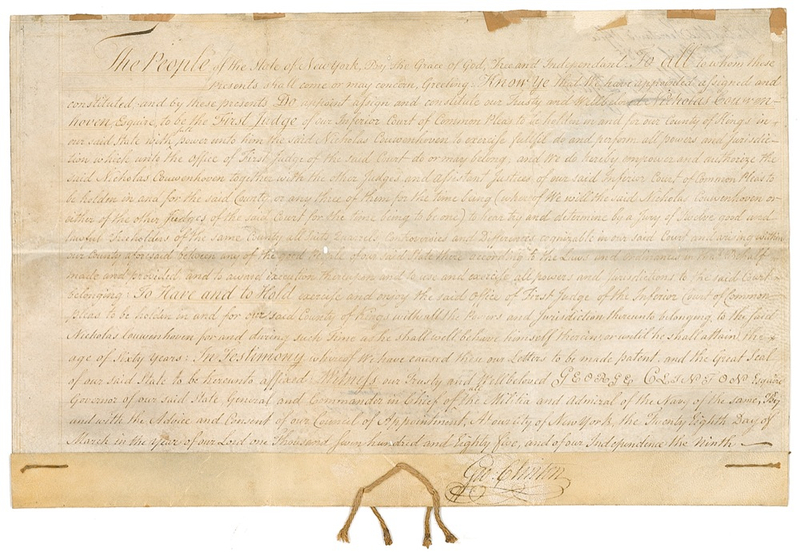 The People of the State of New York, By the Grace of God, Free and Independent: To all to whom these
presents shall come or may concern, Greeting: Know Ye that We have appointed assigned and
constituted and by these presents Do appoint assign and constitute our Trusty and Wellbeloved Nicholas Couwen-
hoven Esquire to be the First Judge of our Inferior Court of Common Pleas to be holden in and for our County of Kings in
our said State with power unto him the said Nicholas Couwenhoven to exercise fulfil do and perform all powers and jurisdic-
tion which unto the Office of First Judge of the said Court do or may belong, and We do hereby empower and authorize the
said Nicholas Couwenhoven together with the other Judges and assistant Justices of our said Inferior Court of Common Pleas to
be holden in and for the said County, or any three of them for the time being (whereof We will the said Nicholas Couwenhoven or
either of the other Judges of the said Court for the time being to be one) to hear try and determine by a Jury of Twelve good and
lawful freeholders of the same County all Suits Quarrels Controversies and Differences cognizable in our said Court and arising within
our County aforesaid between any of the good People of our said State there according to the Laws and Ordinances in that Behalf
made and provided and to award execution thereupon and to use and exercise all powers and jurisdictions to the said Court
belonging To Have and to Hold exercise and enjoy the said Office of First Judge of the Inferior Court of Common
pleas to be holden in and for our said County of Kings with all the Powers and Jurisdiction thereunto belonging to the said
Nicholas Couwenhoven for and during such Time as he shall well behave himself therein or until he shall attain the
age of Sixty years: In Testimony whereof We have caused these our Letters to be made patent, and the Great Seal
of our said State to be hereunto affixed: Witness our Trusty and Wellbeloved GEORGE CLINTON Esquire
Governor of our said State General and Commander in Chief of the Militia and Admiral of the Navy of the same, By
and with the Advice and Consent of our Council of Appointment, At our City of New York, the Twenty Eighth Day of
March in the year of our Lord one Thousand seven hundred and Eighty five, and of our Independence the Ninth
Geo. Clinton